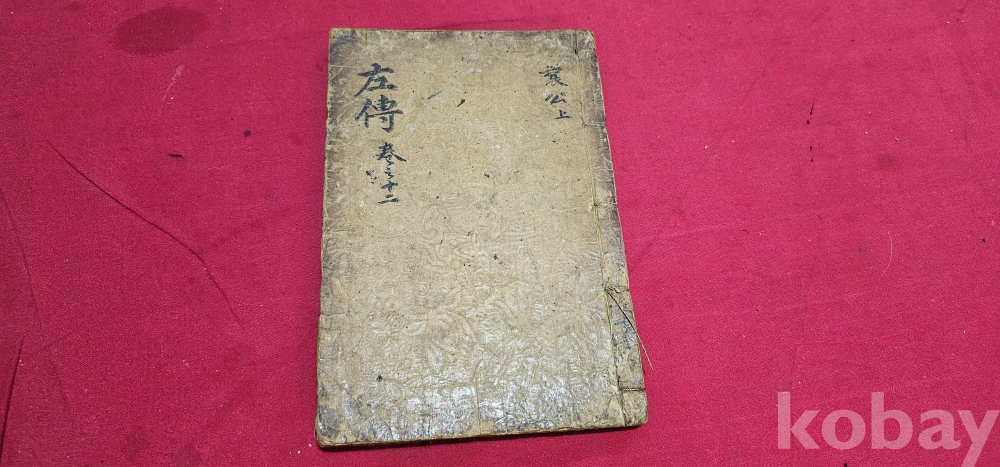 襄公上
左傳
卷之十二
kobay